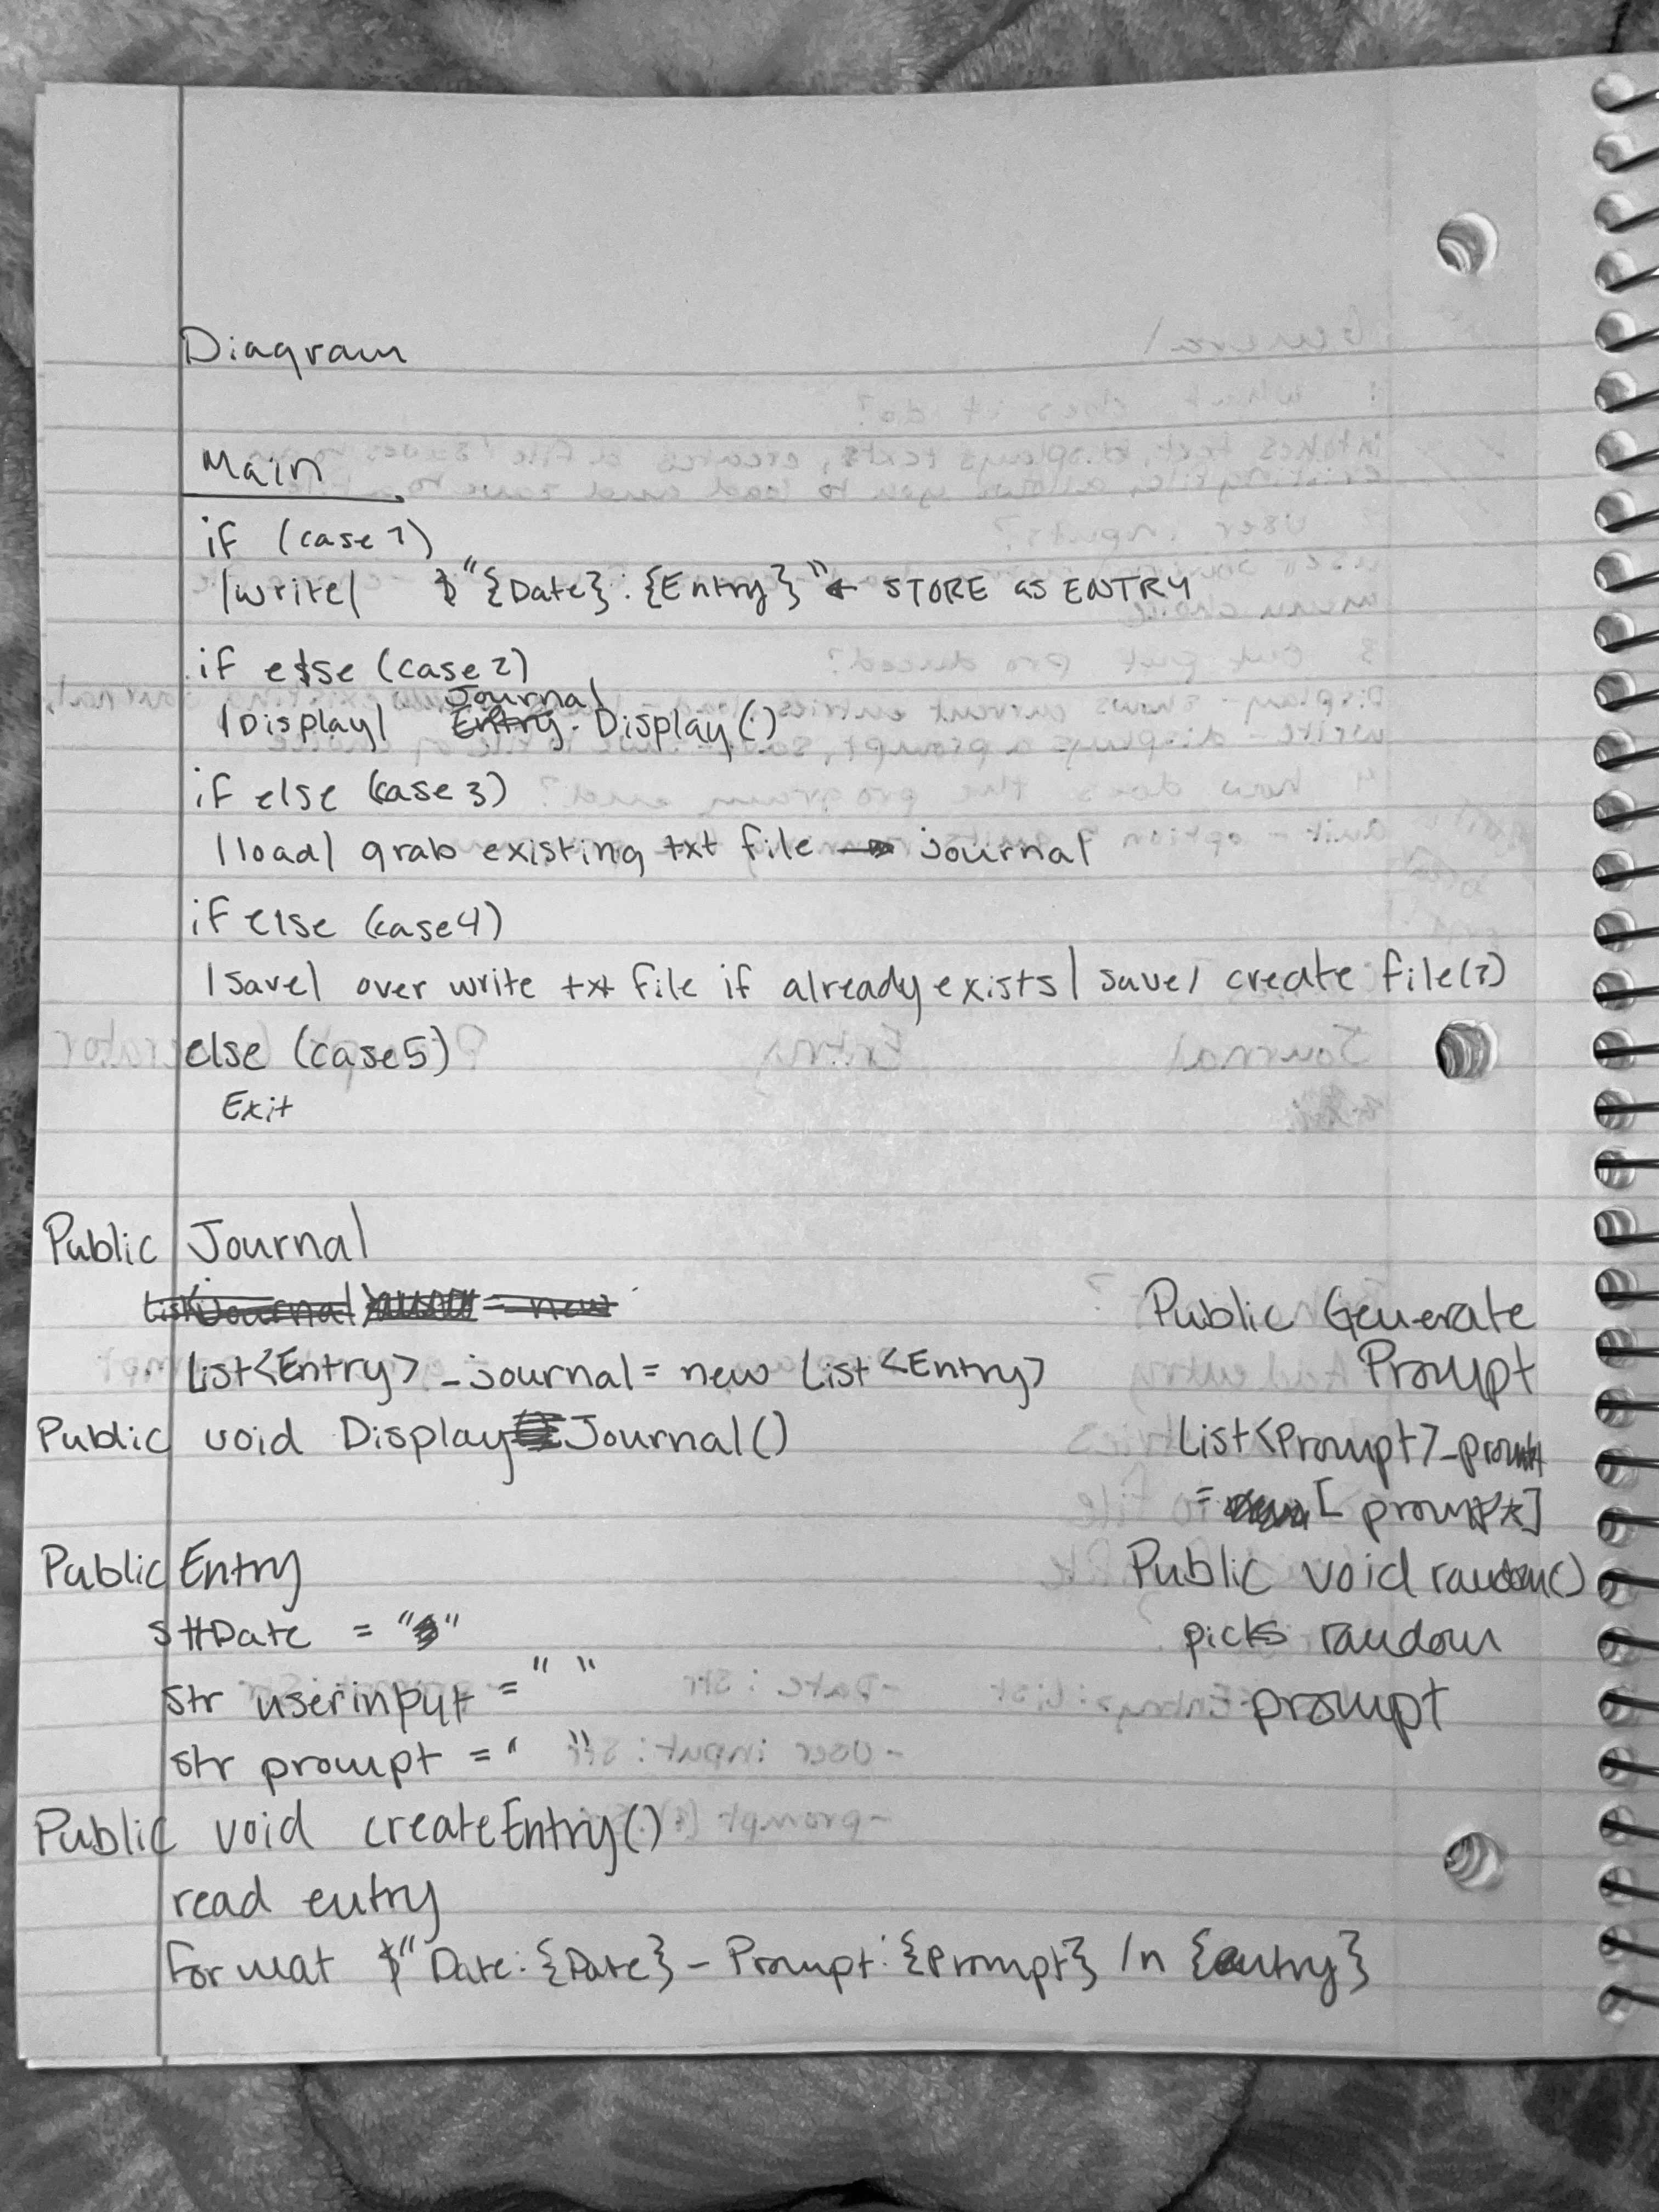 Diagram
Main
if (case 1)
|write| $"{Date}: {Entry}" ← STORE as ENTRY
if else (case 2)
Journal
|Display| Entry. Display()
if else (case 3)
|load| grab existing txt file → journal
if else (case 4)
|save| over write txt file if already exists | save/ create file(?)
else (case 5)
Exit
Public Journal
List<Journal = new
List<Entry> _journal = new List <Entry>
Public void Display Journal()
Public Entry
Date = " "
str userinput = " "
str prompt = " "
Public void createEntry()
read entry
Format $" Date: {Date} - Prompt: {Prompt} /n {entry}
Public Generate
Prompt
List<Prompt>_prompt
= [ prompts]
Public void random()
picks random
prompt